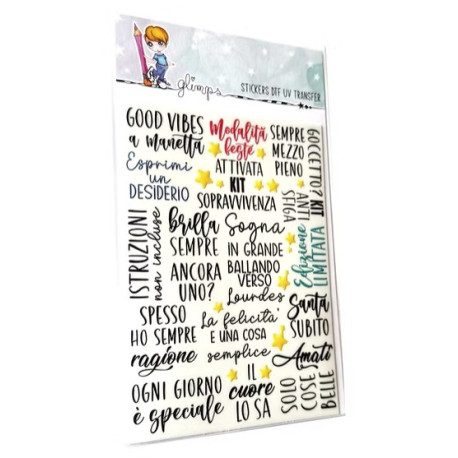 glimps
STICKERS DTF UV TRANSFER
GOOD VIBES
a manetta
Modalità
feste
ATTIVATA
SEMPRE
MEZZO
PIENO
GOCCETTO?
Esprimi
un
DESIDERIO
KIT
SOPRAVVIVENZA
KIT
ANTI
SFIGA
ISTRUZIONI
non incluse
brilla
SEMPRE
Sogna
IN GRANDE
Edizione
LIMITATA
ANCORA
UNO?
BALLANDO
VERSO
Lourdes
SPESSO
HO SEMPRE
ragione
La felicità
E UNA COSA
semplice
Santa
SUBITO
Amati
OGNI GIORNO
è speciale
IL
cuore
LO SA
SOLO
COSE
BELLE